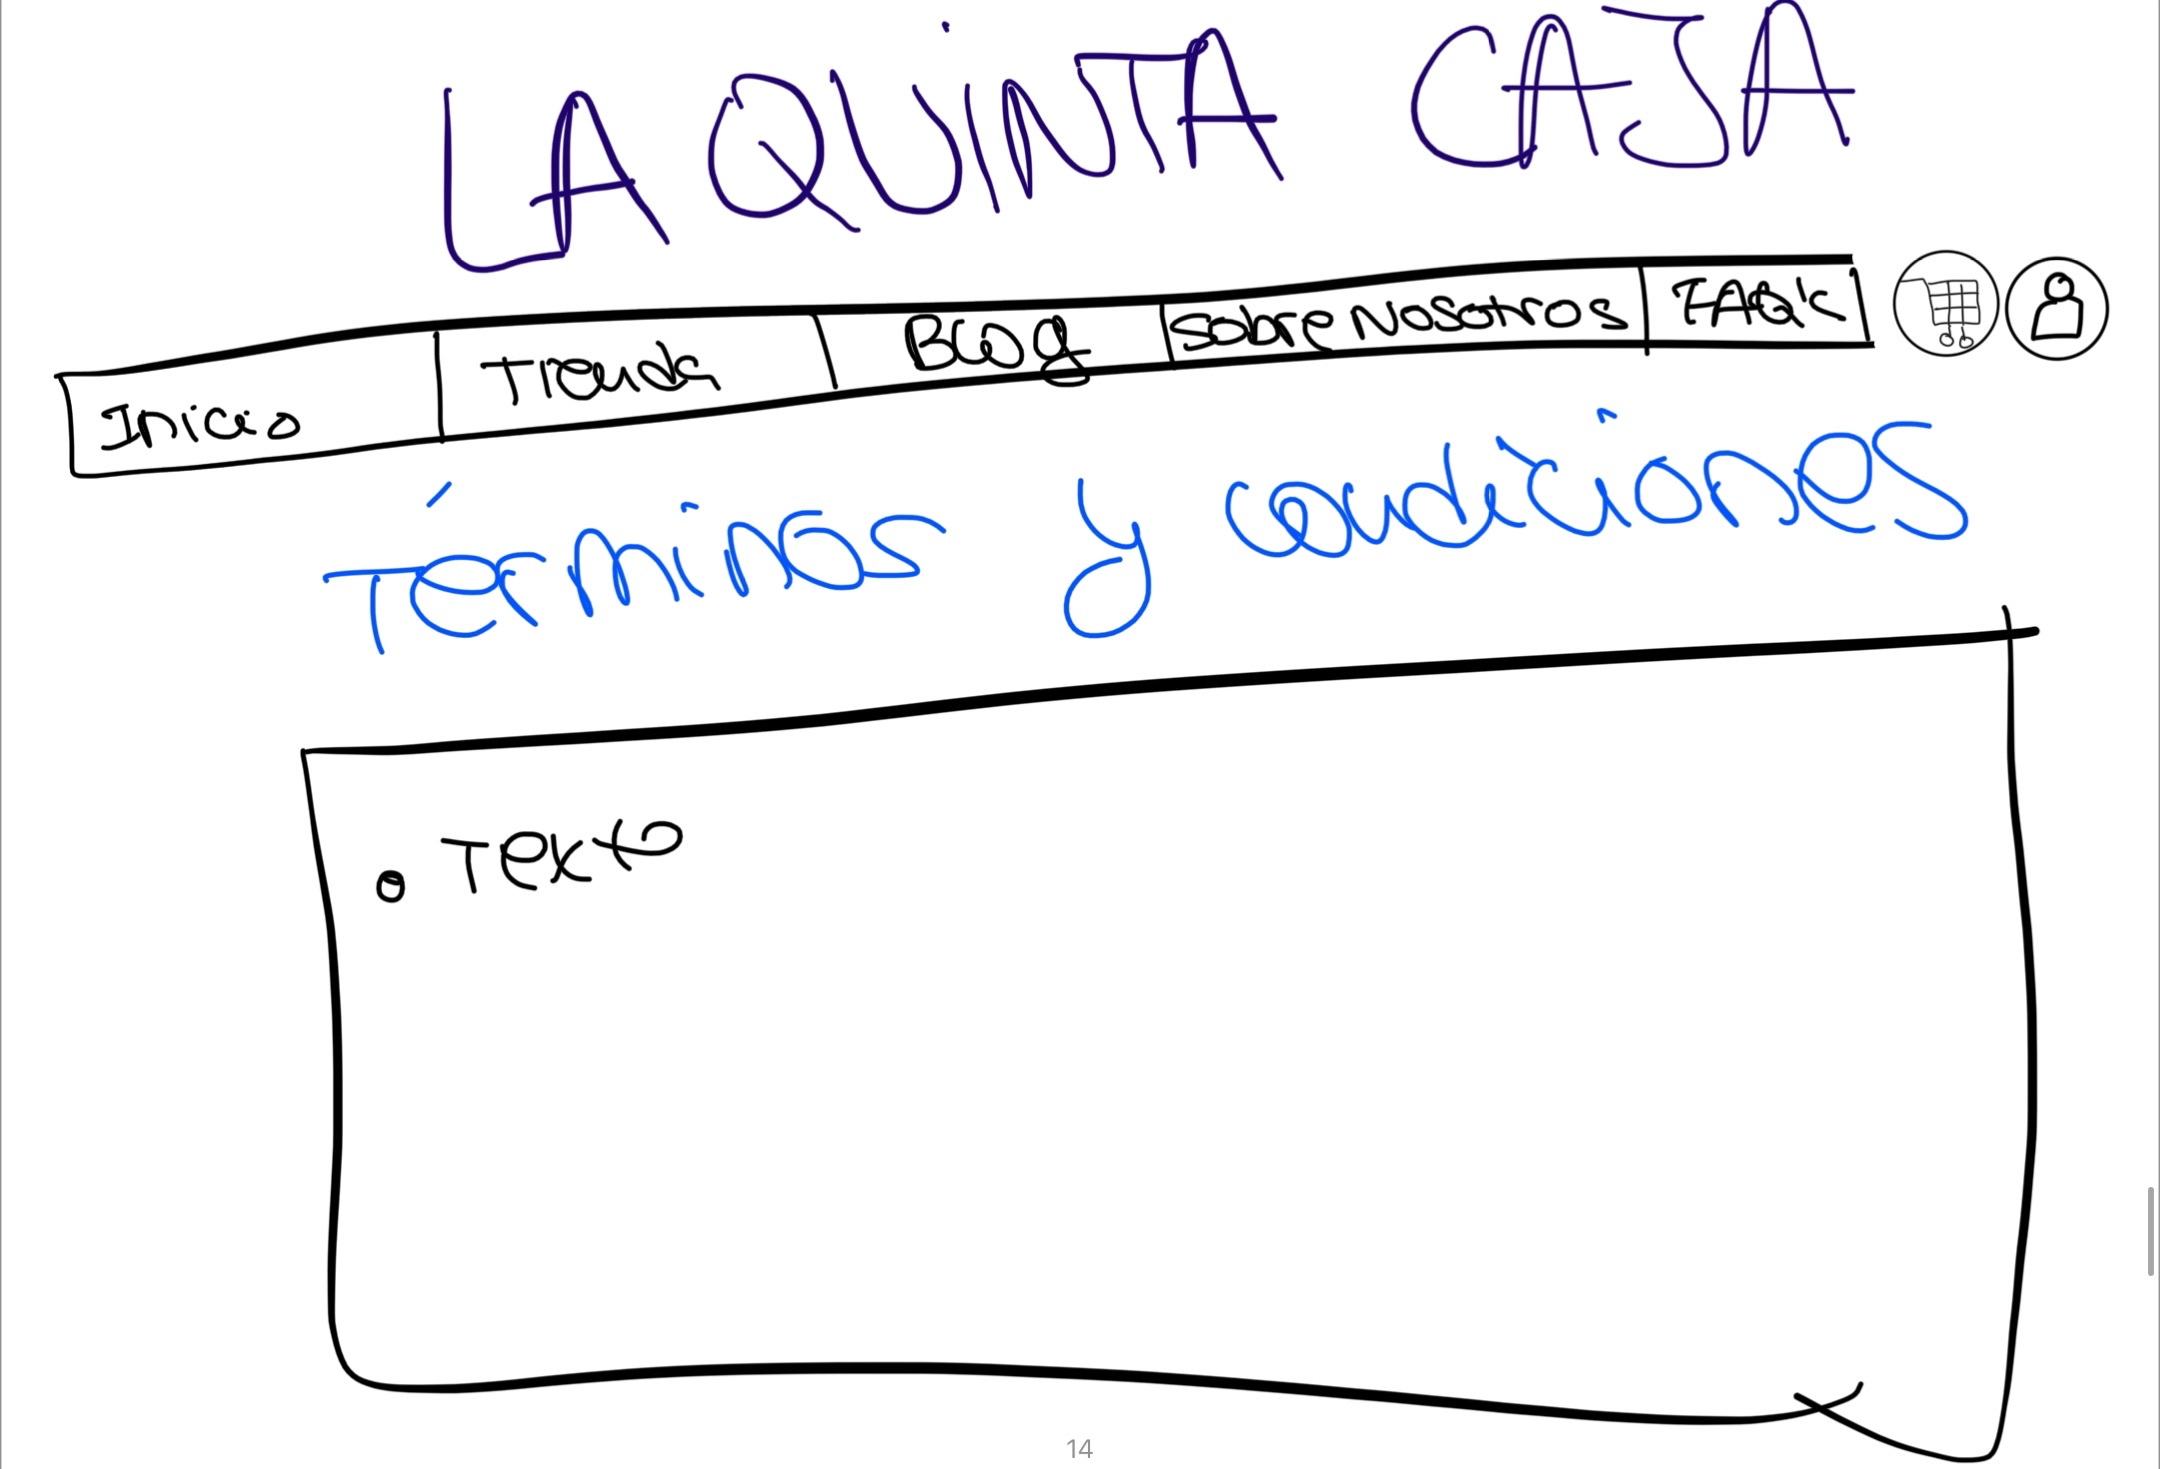 LA QUINTA CAJA
Inicio Tienda Blog Sobre Nosotros FAQ's
Términos y condiciones
Texto
14